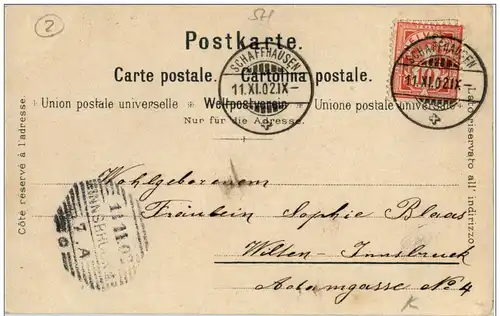 2
SH
Postkarte.
SCHAFFHAUSEN
11.XI.02.IX-
SCHAFFHAUSEN
11.XI.02.IX-
Carte postale. Cartolina postale.
Union postale universelle Weltpostverein Unione postale universale
Nur für die Adresse.
Côte réservé à l'adresse.
Lato riservato all' indirizzo.
INNSBRUCK
11.11.02
7.A
Wohlgeborenem
Fräulein Sophie Blaas
Wilten-Innsbruck
Adamgasse No 4
K